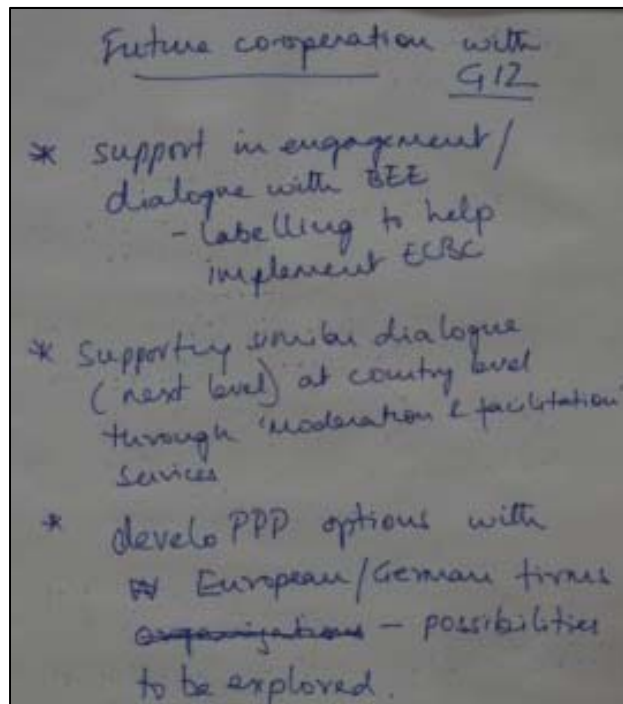 Future cooperation with
GIZ
* support in engagement/
dialogue with BEE
- labelling to help
implement ECBC
* Supporting similar dialogue
(next level) at country level
through 'moderation & facilitation'
services
* develo PPP options with
European/German firms
organizations - possibilities
to be explored.